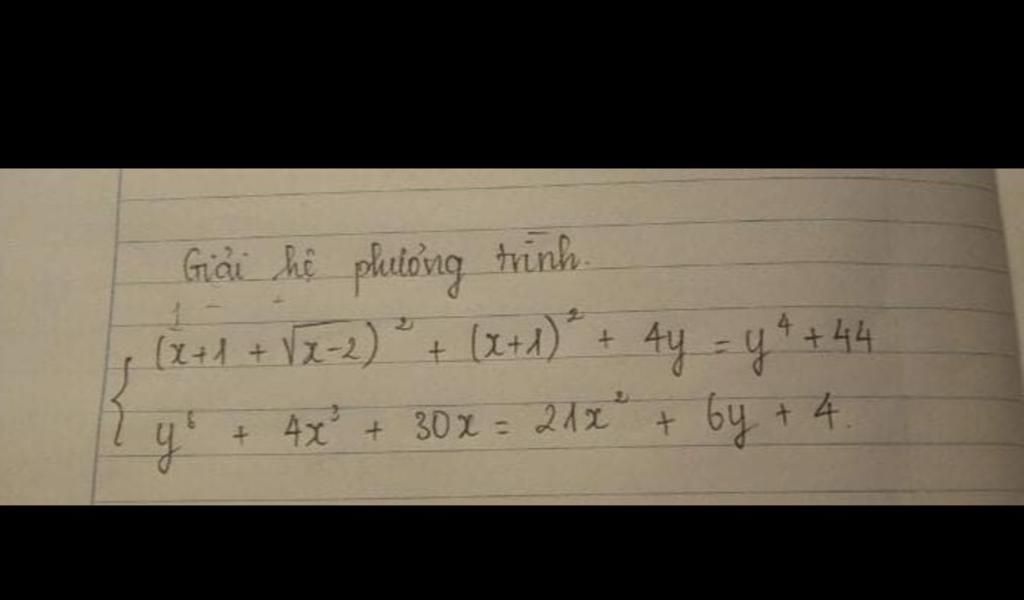 Giải hệ phương trình.
(x+1 + √x-2)² + (x+1)² + 4y = y⁴ + 44
y⁶ + 4x³ + 30x = 21x² + 6y + 4.